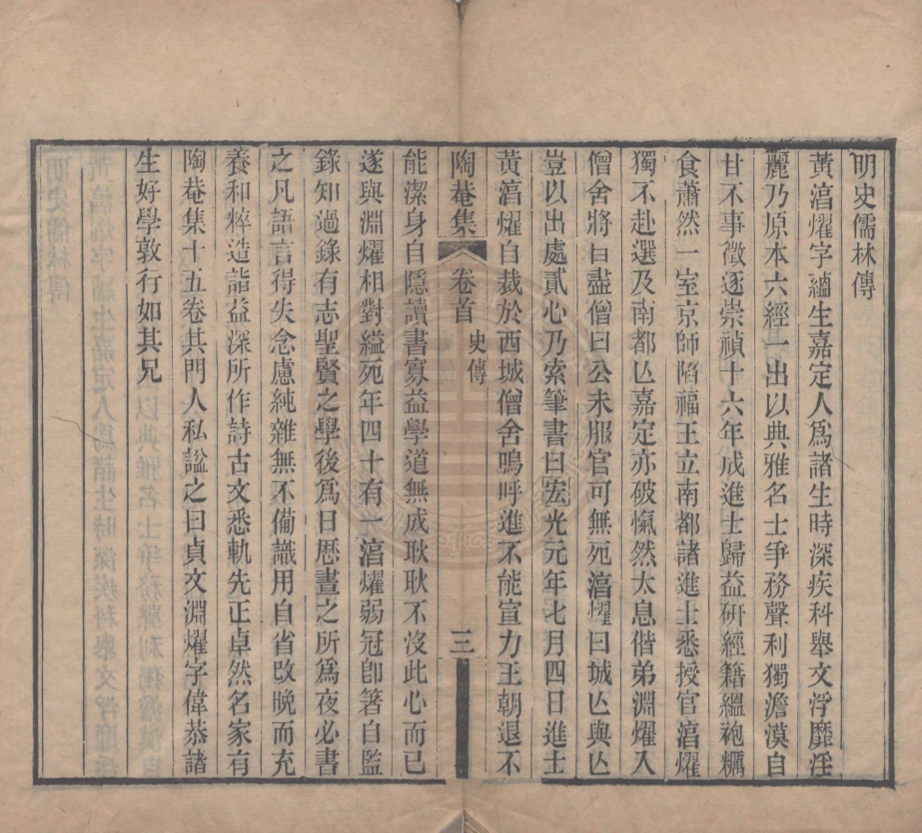 明史儒林傳
黃淯燿字蘊生嘉定人爲諸生時深疾科舉文浮靡淫
麗乃原本六經一出以典雅名士爭務聲利獨澹漠自
甘不事徵逐崇禎十六年成進士歸益硏經籍縕袍糲
食蕭然一室京師陷福王立南都諸進士悉授官淯燿
獨不赴選及南都亾嘉定亦破愾然太息偕弟淵燿入
僧舍將曰盡僧曰公未服官可無死淯燿曰城亾與亾
豈以出處貳心乃索筆書曰宏光元年七月四日進士
黃淯燿自裁於西城僧舍嗚呼進不能宣力王朝退不
陶菴集 卷首 史傳 三
能潔身自隱讀書寡益學道無成耿耿不沒此心而已
遂與淵燿相對縊死年四十有一淯燿弱冠卽箸自監
錄知過錄有志聖賢之學後爲日歷晝之所爲夜必書
之凡語言得失念慮純雜無不備識用自省改晚而充
養和粹造詣益深所作詩古文悉軌先正卓然名家有
陶菴集十五卷其門人私謚之曰貞文淵燿字偉恭諸
生好學敦行如其兄